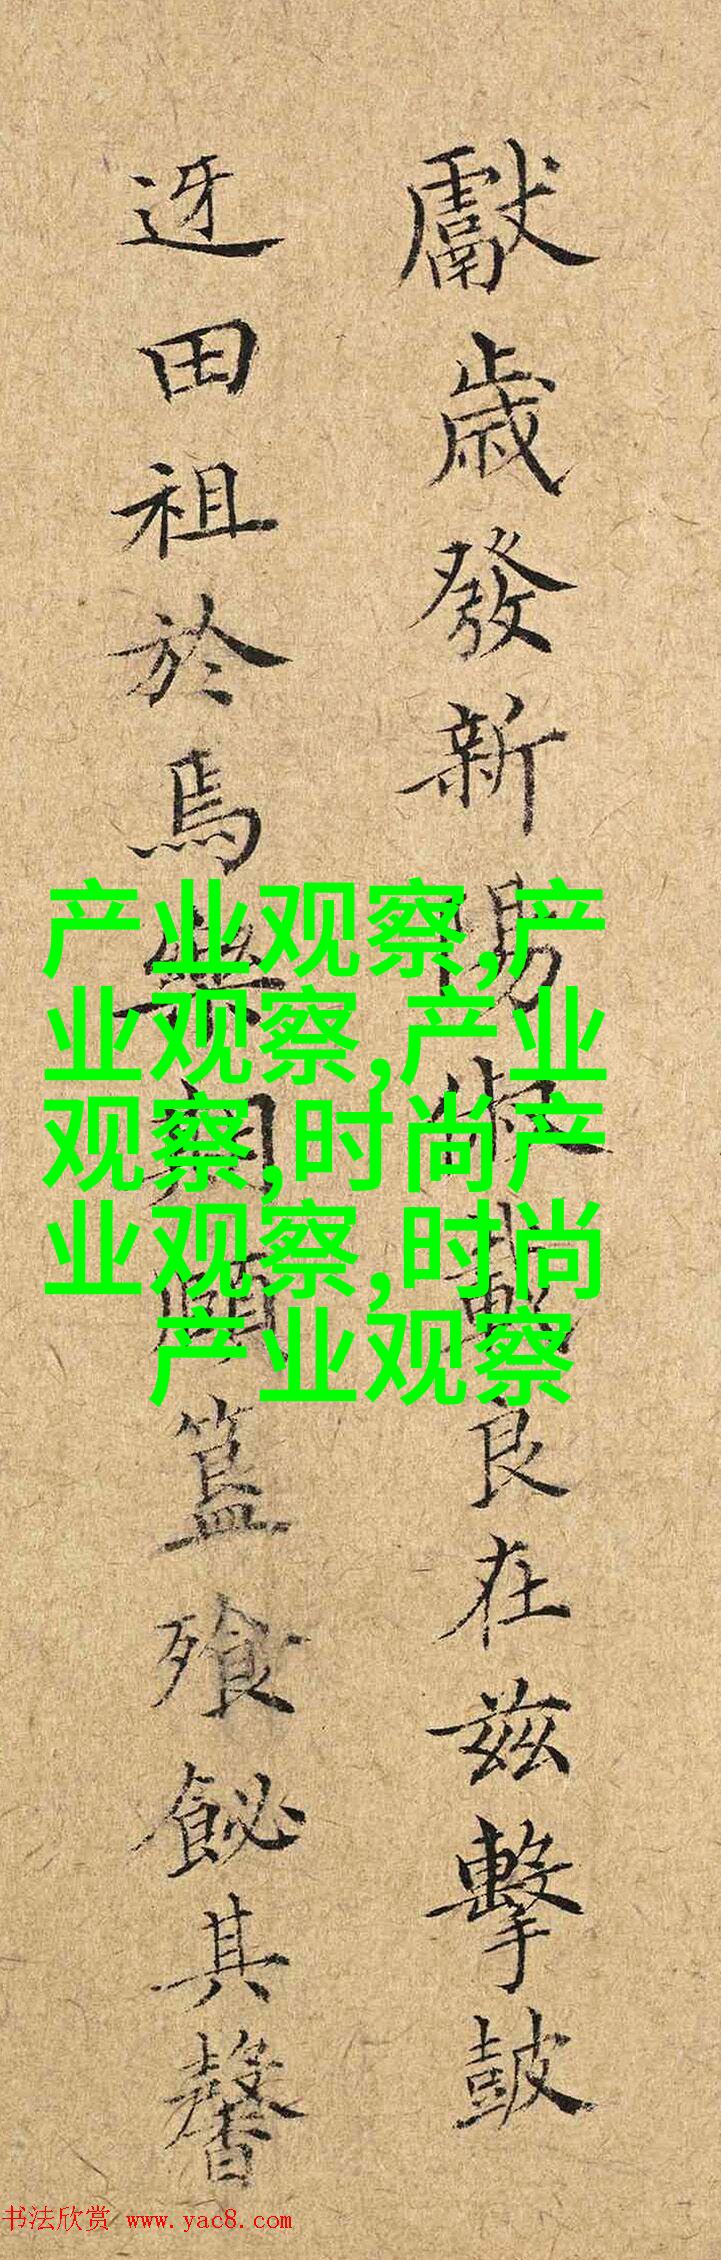 獻歲發新陽俶載良在茲擊鼓
迓田祖於焉樂簋飱飶其馨
产业观察,产
业观察,产业
观察,时尚产
业观察,时尚
产业观察
书法欣赏 www.yac8.com